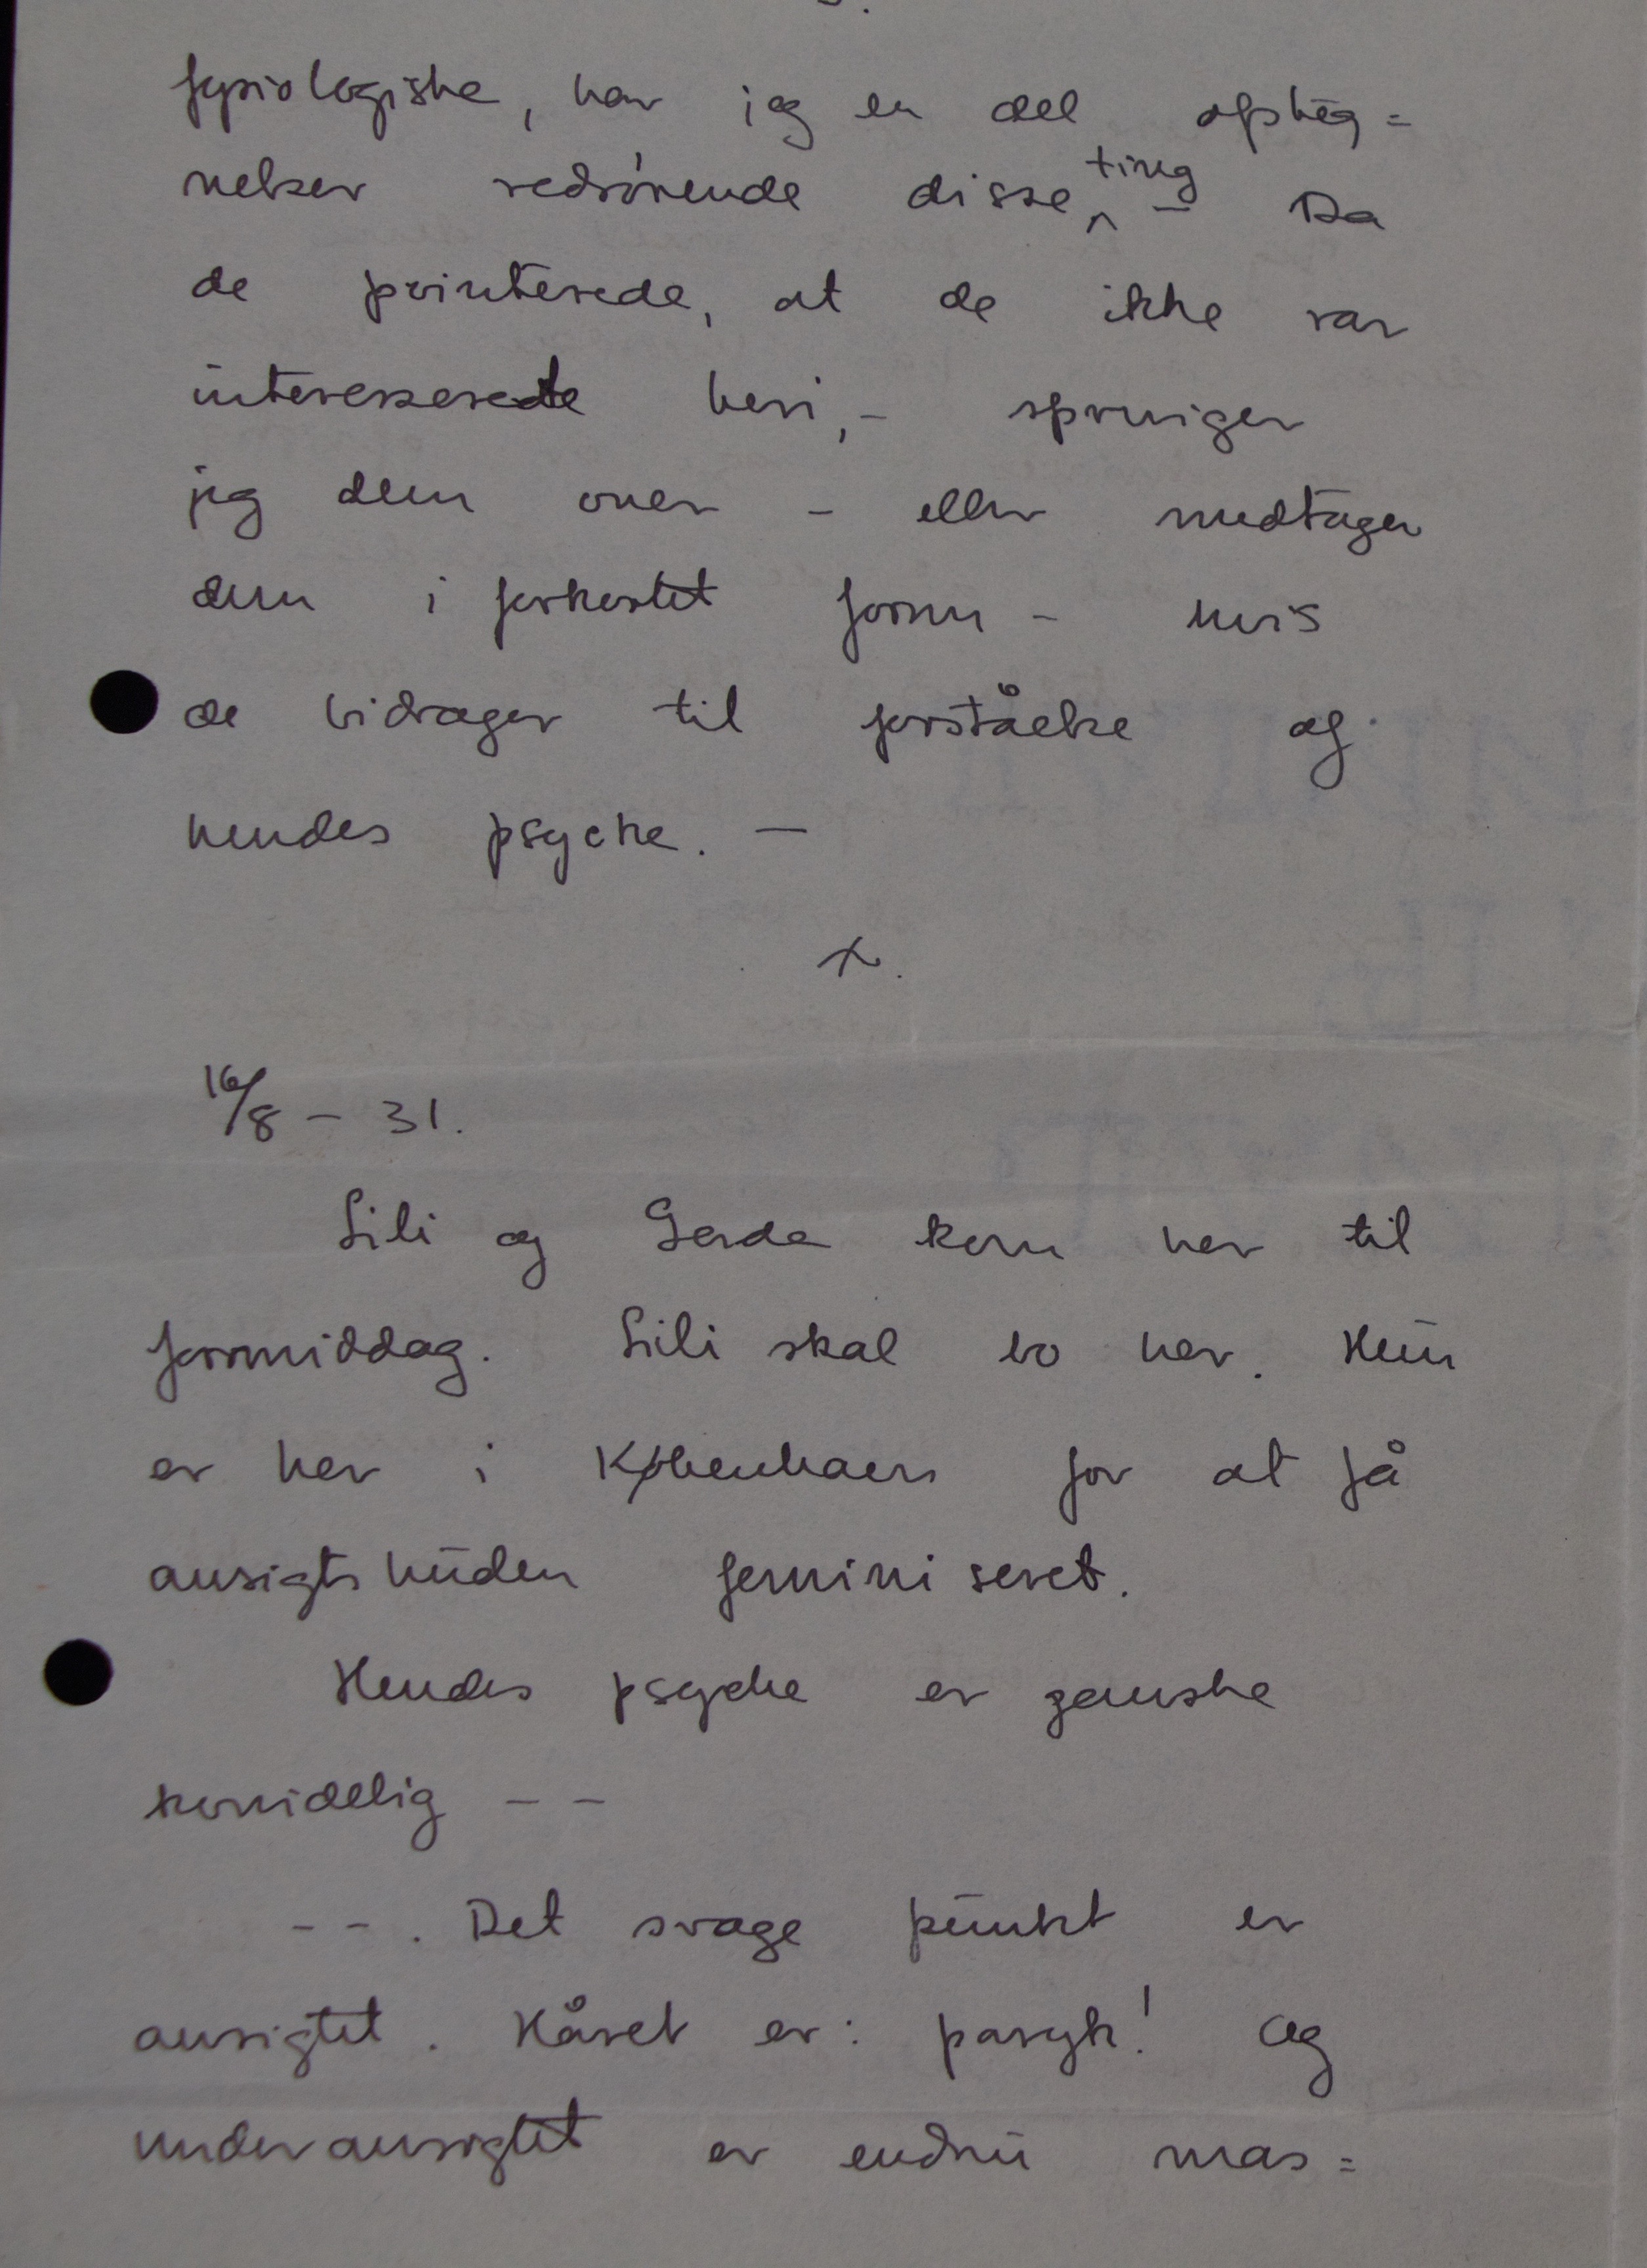 fysiologiske, har jeg en del opteg=
nelser vedrörende disse ting. Da
de pointerede, at de ikke var
interesserede heri, - springer
jeg dem over - eller medtager
dem i forkortet form - hvis
de bidrager til forståelse af
hendes psyche. —
x.
16/8 - 31.
Lili og Gerda kom her til
formiddag. Lili skal bo her. Hun
er her i København for at få
ansigtshuden feminiseret.
Hendes psyche er ganske
kvindelig - - -
- - . Det svage punkt er
ansigtet. Håret er: paryk! Og
underansigtet er endnu mas=